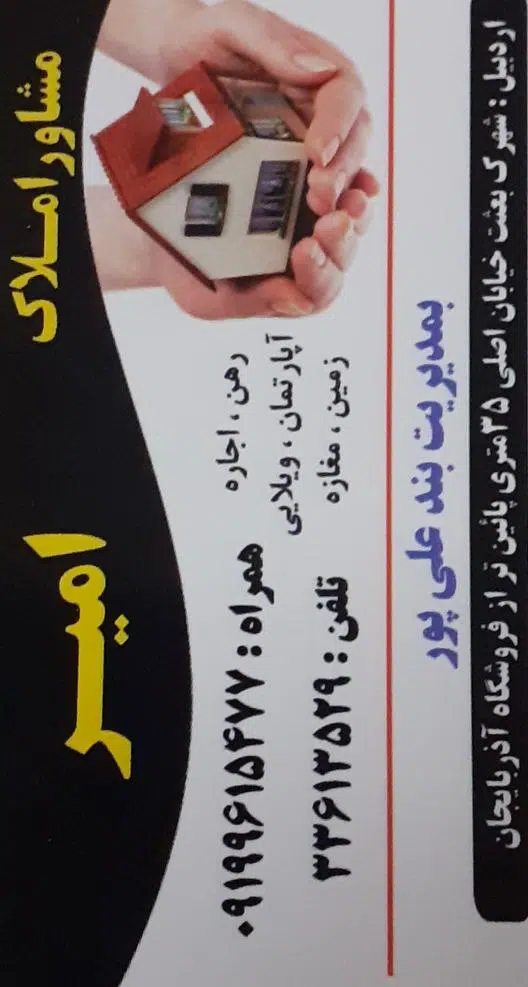 مشاور املاک
امیر
رهن ، اجاره
آپارتمان ، ویلایی
زمین ، مغازه
همراه : ۰۹۱۹۹۶۱۵۴۷۷
تلفن : ۳۳۶۱۳۵۲۹
بمدیریت بند علی پور
اردبیل : شهرک بعثت خیابان اصلی ۳۵متری پائین تر از فروشگاه آذربایجان